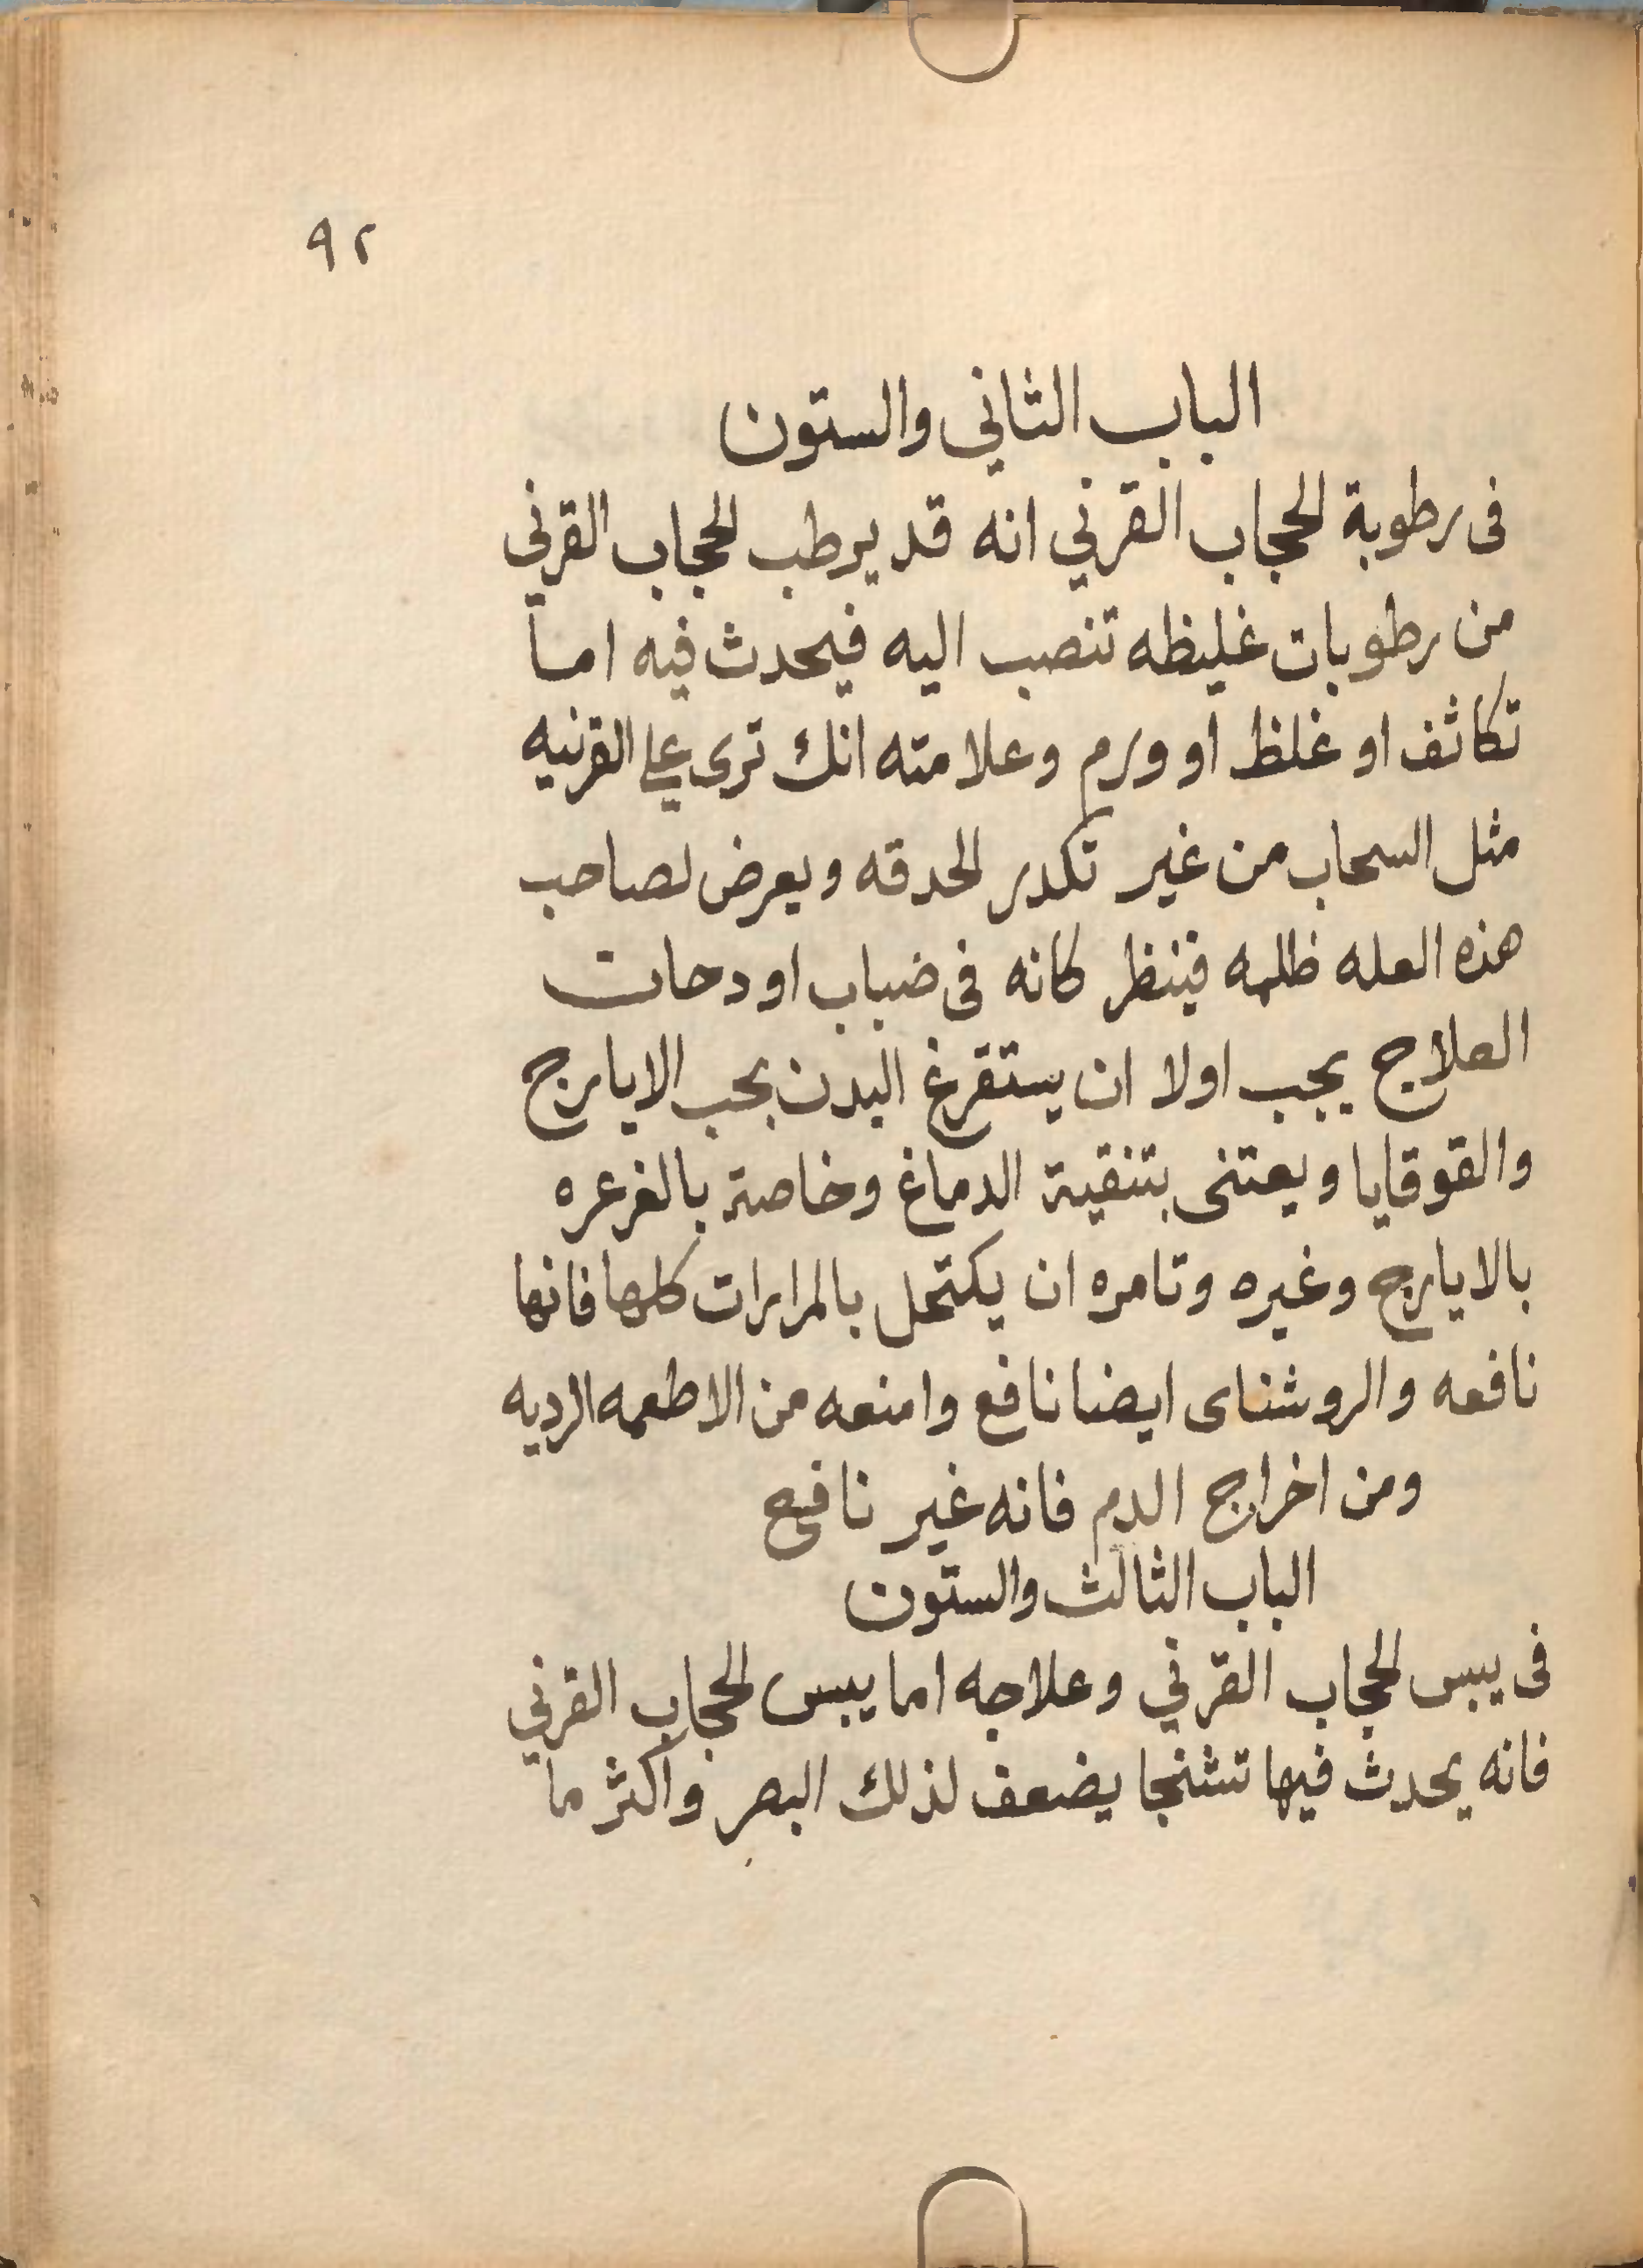 ٩٢
الباب الثاني والستون
فى رطوبة الحجاب القرني انه قد يرطب الحجاب القرني
من رطوبات غليظه تنصب اليه فيحدث فيه اما
تكاثف او غلظ او ورم وعلامته انك ترى على القرنيه
مثل السحاب من غير تكدر الحدقه ويعرض لصاحب
هذه العله ظلمه فينظر كانه فى ضباب او دحات
العلاج يجب اولا ان يستقرغ البدن بحب الايارج
والقوقايا ويعتنى بتنقية الدماغ وخاصة بالغرعره
بالايارج وغيره وتامره ان يكتحل بالمرارات كلها فانها
نافعه والروشناى ايضا نافع وامنعه من الاطعمه الرديه
ومن اخراج الدم فانه غير نافع
الباب الثالث والستون
فى يبس الحجاب القرني وعلاجه اما يبس الحجاب القرني
فانه يحدث فيها تشنجا يضعف لذلك البصر واكثر ما